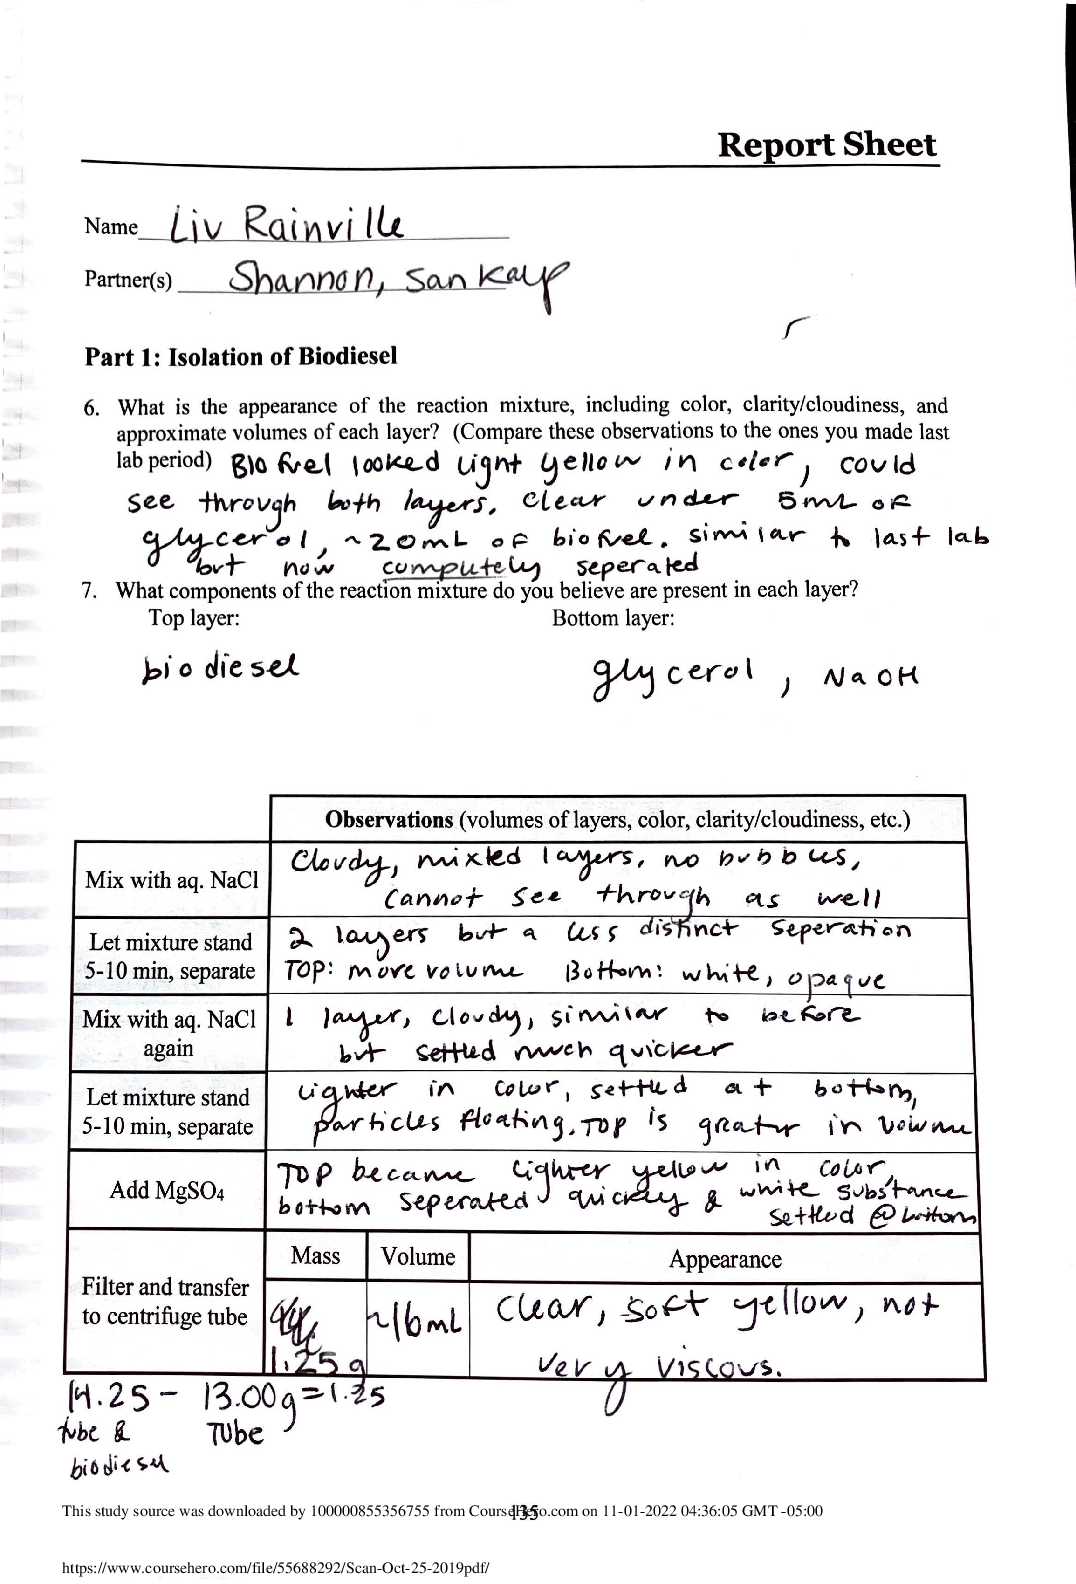 Report Sheet
Name Liv Rainville
Partner(s) Shannon, Sankalp
Part 1: Isolation of Biodiesel
6. What is the appearance of the reaction mixture, including color, clarity/cloudiness, and
approximate volumes of each layer? (Compare these observations to the ones you made last
lab period) Biofuel looked light yellow in color, could
see through both layers. Clear under 5mL of
glycerol, ~20mL of biofuel. similar to last lab
but now completely seperated
7. What components of the reaction mixture do you believe are present in each layer?
Top layer: Bottom layer:
biodiesel glycerol, NaOH
Observations (volumes of layers, color, clarity/cloudiness, etc.)
Mix with aq. NaCl
Cloudy, mixted layers, no bubbles,
cannot see through as well
Let mixture stand
5-10 min, separate
2 layers but a less distinct seperation
TOP: more volume Bottom: white, opaque
Mix with aq. NaCl
again
1 layer, cloudy, similar to before
but settled much quicker
Let mixture stand
5-10 min, separate
Lighter in color, settled at bottom,
particles floating. TOP is greater in volume
Add MgSO4
TOP became lighter yellow in color,
bottom seperated quickly & white substance
settled @ bottom
Mass Volume Appearance
Filter and transfer
to centrifuge tube
1.25g
~16mL
Clear, soft yellow, not
very viscous.
14.25 - 13.00g = 1.25
tube & Tube
biodiesel
135
This study source was downloaded by 100000855356755 from CourseHero.com on 11-01-2022 04:36:05 GMT -05:00
https://www.coursehero.com/file/55688292/Scan-Oct-25-2019pdf/